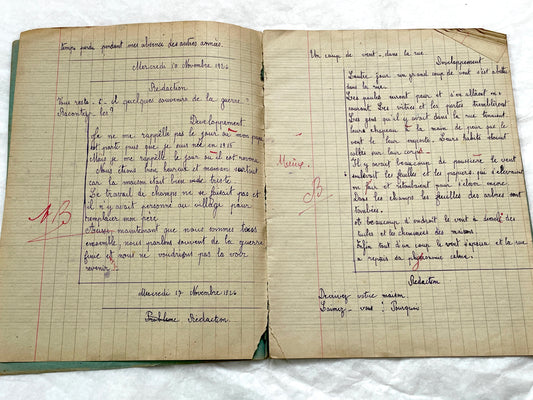 temps perdu pendant mes absence des autres années.
Mercredi 10 Novembre 1926
Rédaction
Vous reste-t-il quelques souvenirs de la guerre ?
Racontez-les ?
Développement
Je ne me rappelle pas le jour où mon papa
est partir puis que je suis née en 1915
Mais je me rappelle le jour où il est revenu.
Nous étions bien heureux et moment surtout
car la maison était bien triste.
Le travail de champs ne se faisait pas et
il n'y avait personne au village pour
remplacer mon père.
Aussi maintenant que nous sommes tous
ensemble, nous parlons souvent de la guerre
finie et nous ne voudrions pas la voir
revenir.
B
Mercredi 17 Novembre 1926
Problème Rédaction.
Un coup de vent dans la rue.
Développement
L'autre jour un grand coup de vent s'est abattu
dans la rue.
Les poules eurent peur et s'en allèrent en
courant. Les vitres et les portes tremblèrent
Les gens qu'il y avait dans la rue tinrent
leurs chapeau à la main de peur que le
vent le leur emporte. Leurs habits étaient
collés sur leur corps.
Il y avait beaucoup de poussière le vent
enlevait les feuilles et les papiers, qui s'élevaient
en l'air et retombaient pour s'élever même.
Dans les champs les feuilles des arbres sont
tombées.
Mieux.
B
beaucoup d'endroit le vent a démoli des
tuiles et les cheminées des maisons.
Enfin tout d'un coup le vent s'apaisa et la rue
a repris sa physionomie calme.
Rédaction
Décrivez votre maison.
L'aimez-vous ? Pourquoi